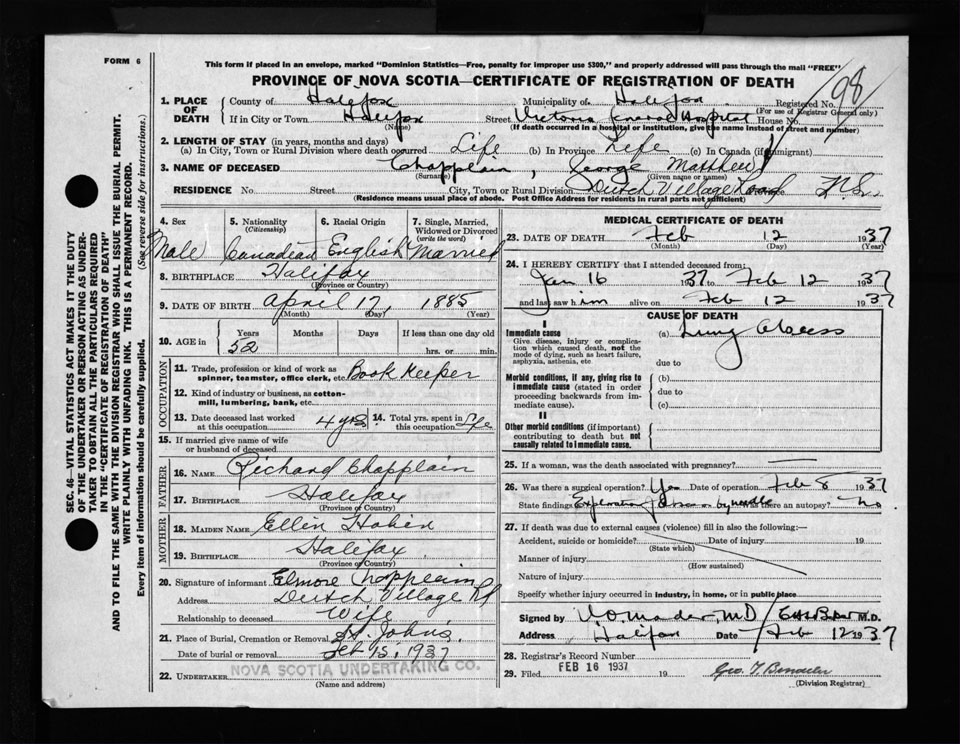 FORM 6
This form if placed in an envelope, marked "Dominion Statistics—Free, penalty for improper use $300," and properly addressed will pass through the mail "FREE"
PROVINCE OF NOVA SCOTIA—CERTIFICATE OF REGISTRATION OF DEATH
98
1. PLACE OF DEATH
County of Halifax Municipality of Halifax Registered No.
(For use of Registrar General only)
If in City or Town Halifax Street Victoria General Hospital House No.
(Name) (If death occurred in a hospital or institution, give the name instead of street and number)
2. LENGTH OF STAY (in years, months and days)
(a) In City, Town or Rural Division where death occurred Life (b) In Province Life (c) In Canada (if immigrant)
3. NAME OF DECEASED Chapplain, George Matthew
(Surname) (Given name or names)
RESIDENCE No. Street City, Town or Rural Division Dutch Village Road N.S.
(Residence means usual place of abode. Post Office Address for residents in rural parts not sufficient)
4. Sex Male
5. Nationality (Citizenship) Canadian
6. Racial Origin English
7. Single, Married, Widowed or Divorced (write the word) Married
8. BIRTHPLACE Halifax
(Province or Country)
9. DATE OF BIRTH April 17, 1885
(Month) (Day) (Year)
10. AGE in Years Months Days If less than one day old
52 hrs. or min.
OCCUPATION
11. Trade, profession or kind of work as spinner, teamster, office clerk, etc. Book Keeper
12. Kind of industry or business, as cotton-mill, lumbering, bank, etc.
13. Date deceased last worked at this occupation 4 yrs
14. Total yrs. spent in this occupation Life
15. If married give name of wife or husband of deceased
FATHER
16. NAME Richard Chapplain
17. BIRTHPLACE Halifax
(Province or Country)
MOTHER
18. MAIDEN NAME Ellen
19. BIRTHPLACE Halifax
(Province or Country)
20. Signature of informant Chapplain
Address Dutch Village Rd
Relationship to deceased Wife
21. Place of Burial, Cremation or Removal St. John's
Date of burial or removal Feb 15, 1937
22. UNDERTAKER NOVA SCOTIA UNDERTAKING CO.
(Name and address)
MEDICAL CERTIFICATE OF DEATH
23. DATE OF DEATH Feb 12 1937
(Month) (Day) (Year)
24. I HEREBY CERTIFY that I attended deceased from:
Jan 16 1937 to Feb 12 1937
and last saw him alive on Feb 12 1937
CAUSE OF DEATH
I
Immediate cause (a) Lung Abcess
Give disease, injury or complication which caused death, not the mode of dying, such as heart failure, asphyxia, asthenia, etc.
due to
Morbid conditions, if any, giving rise to immediate cause (stated in order proceeding backwards from immediate cause).
(b)
due to
(c)
II
Other morbid conditions (if important) contributing to death but not causally related to immediate cause.
25. If a woman, was the death associated with pregnancy?
26. Was there a surgical operation? Yes Date of operation Feb 8 1937
State findings by needle Was there an autopsy? no
27. If death was due to external causes (violence) fill in also the following:—
Accident, suicide or homicide? Date of injury 19
(State which)
Manner of injury
(How sustained)
Nature of injury
Specify whether injury occurred in industry, in home, or in public place
Signed by V.O. Mader, MD M.D.
Address Halifax Date Feb 12 1937
28. Registrar's Record Number
29. Filed FEB 16 1937 19
(Division Registrar)
SEC. 46—VITAL STATISTICS ACT MAKES IT THE DUTY
OF THE UNDERTAKER OR PERSON ACTING AS UNDER-
TAKER TO OBTAIN ALL THE PARTICULARS REQUIRED
IN THE "CERTIFICATE OF REGISTRATION OF DEATH"
AND TO FILE THE SAME WITH THE DIVISION REGISTRAR WHO SHALL ISSUE THE BURIAL PERMIT.
WRITE PLAINLY WITH UNFADING INK. THIS IS A PERMANENT RECORD.
Every item of information should be carefully supplied. (See reverse side for instructions.)